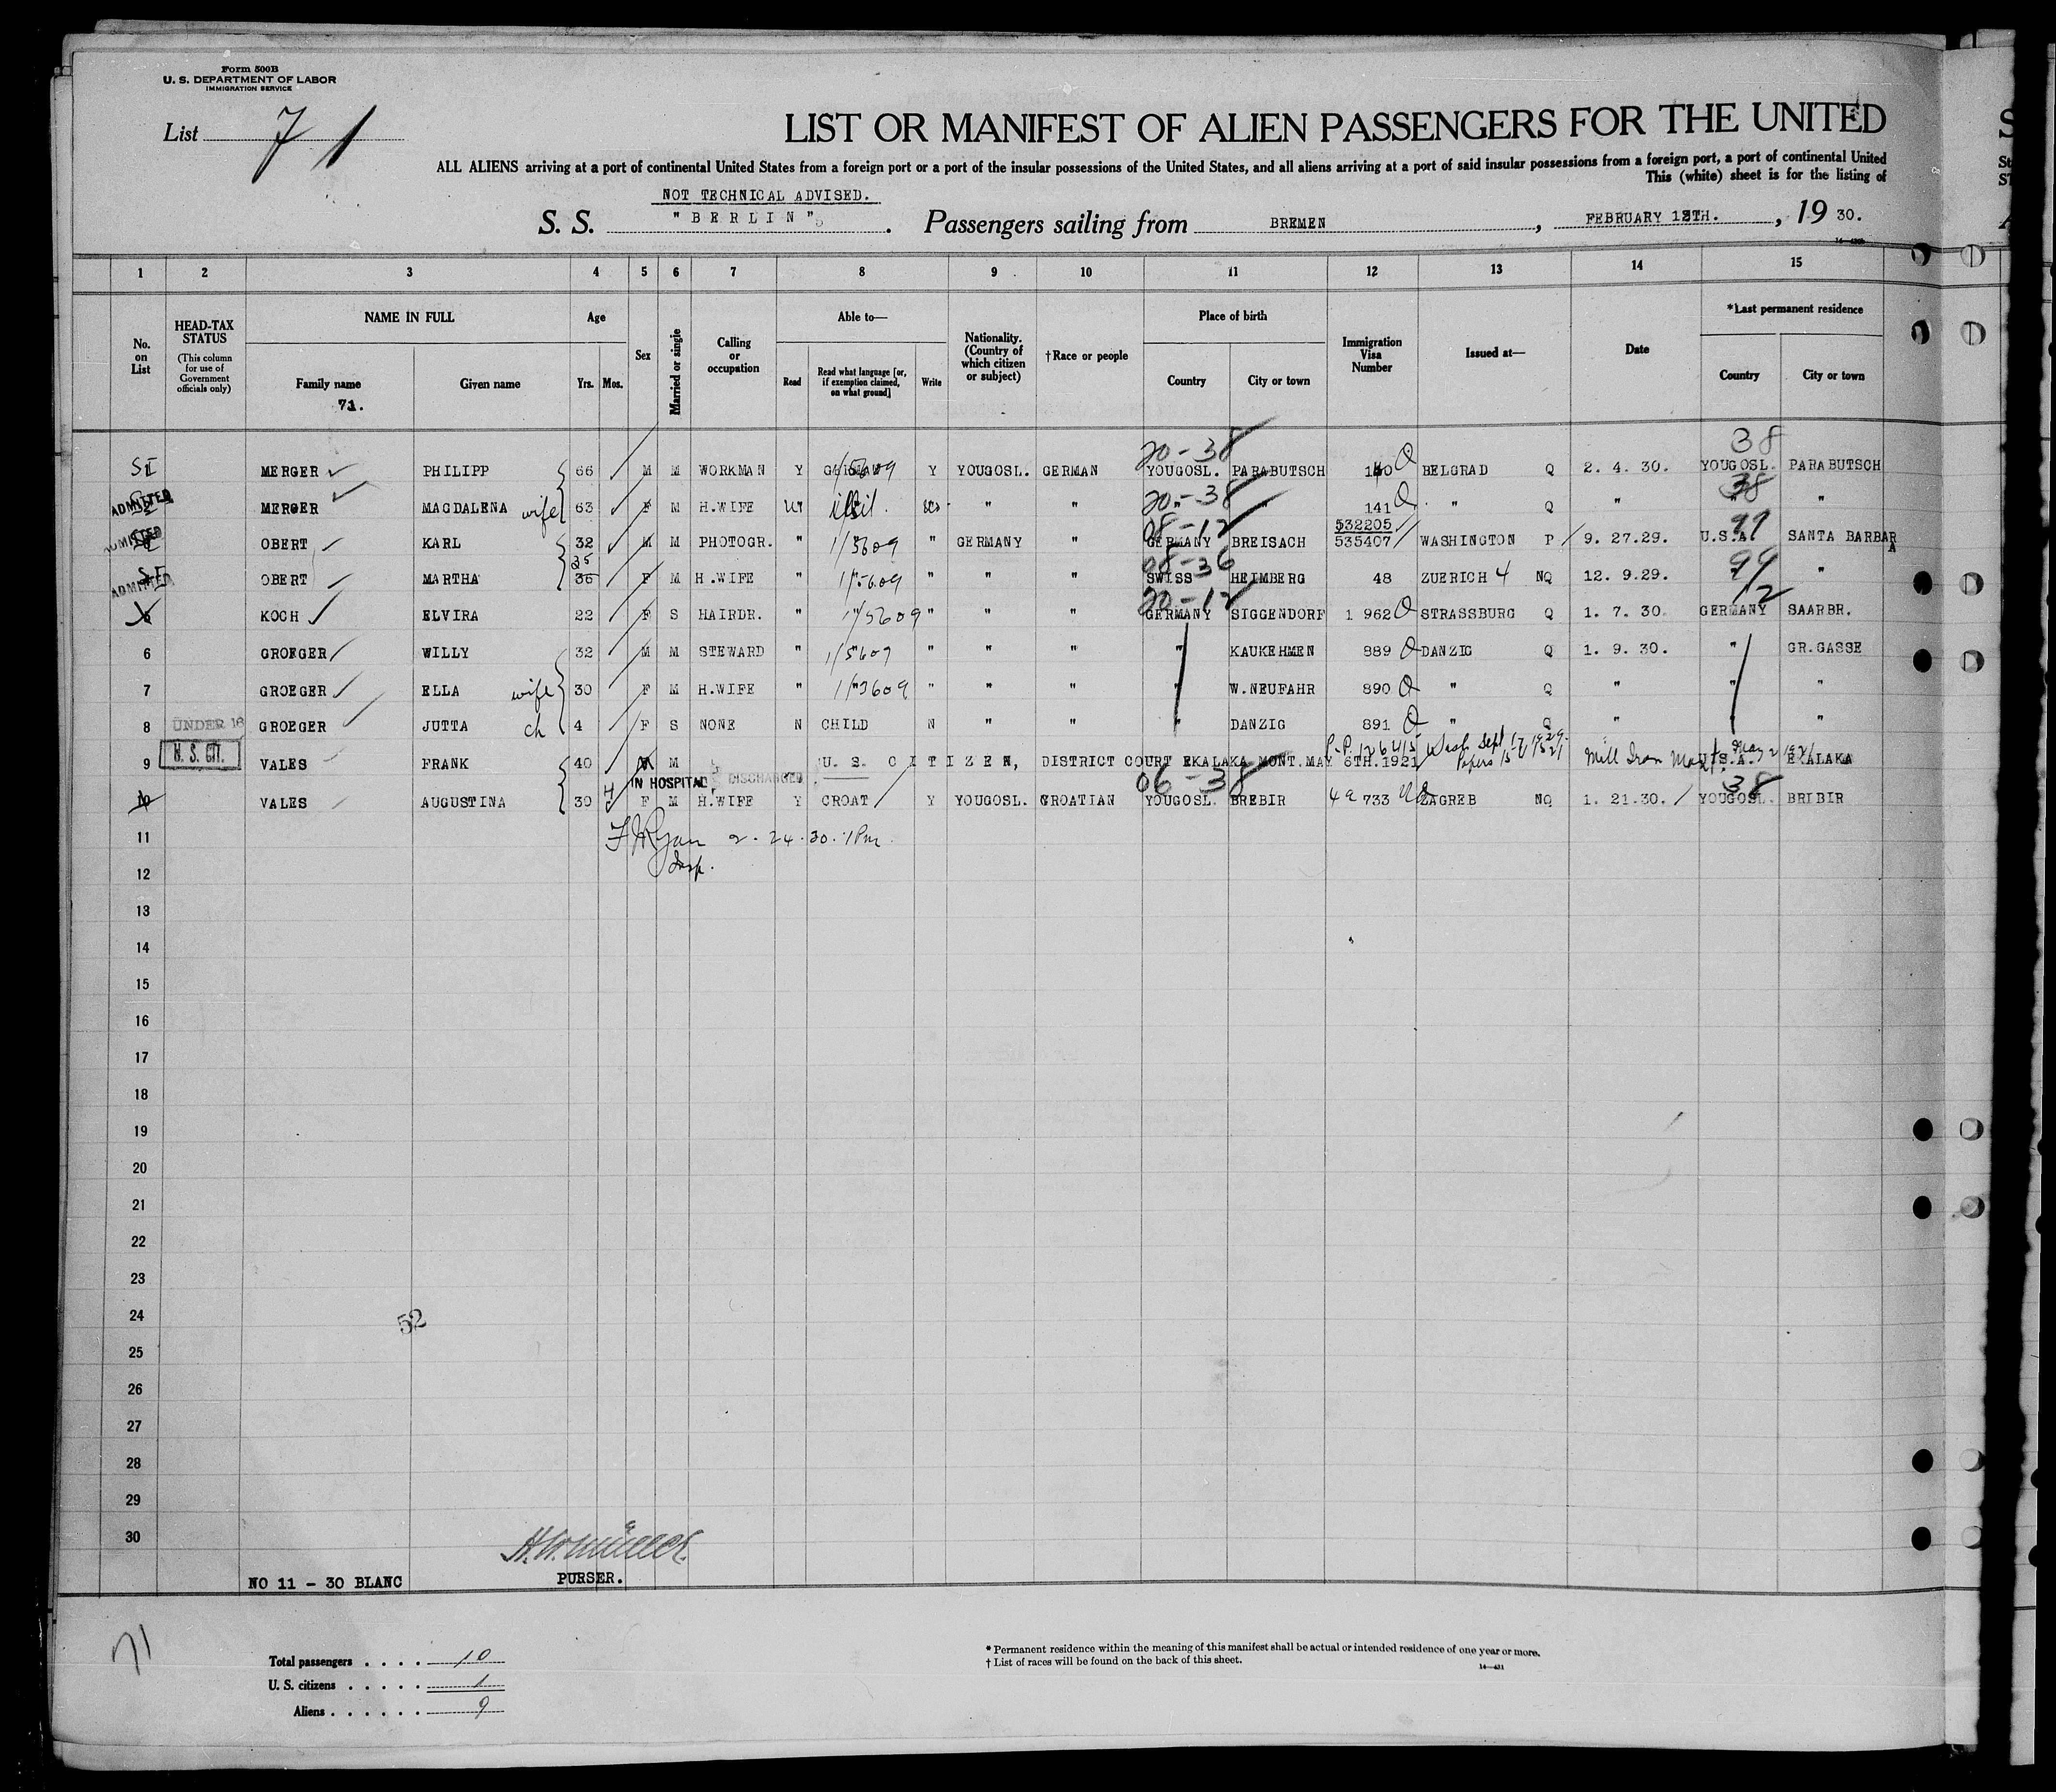 Form 500B
U. S. DEPARTMENT OF LABOR
IMMIGRATION SERVICE
List 71
LIST OR MANIFEST OF ALIEN PASSENGERS FOR THE UNITED
ALL ALIENS arriving at a port of continental United States from a foreign port or a port of the insular possessions of the United States, and all aliens arriving at a port of said insular possessions from a foreign port, a port of continental United
This (white) sheet is for the listing of
NOT TECHNICAL ADVISED.
S. S. "BERLIN". Passengers sailing from BREMEN, FEBRUARY 13TH., 19 30.
1 2 3 4 5 6 7 8 9 10 11 12 13 14 15
No. on List
HEAD-TAX STATUS (This column for use of Government officials only)
NAME IN FULL
Family name 71. Given name
Age Yrs. Mos.
Sex
Married or single
Calling or occupation
Able to— Read Read what language [or, if exemption claimed, on what ground] Write
Nationality. (Country of which citizen or subject)
†Race or people
Place of birth Country City or town
Immigration Visa Number
Issued at—
Date
*Last permanent residence Country City or town
20-38 38
SI MERGER PHILIPP 66 M M WORKMAN Y GERMAN 1/5609 Y YOUGOSL. GERMAN YOUGOSL. PARABUTSCH 140 Q BELGRAD Q 2. 4. 30. YOUGOSL. PARABUTSCH
20-38 38
ADMITTED MERGER MAGDALENA wife 63 F M H.WIFE no " no " " " " 141 Q " Q " " "
08-12 532205 99
ADMITTED OBERT KARL 32 M M PHOTOGR. " 1/5609 " GERMANY " GERMANY BREISACH 535407 WASHINGTON P 9. 27.29. U.S.A. SANTA BARBARA
25 08-36 99
ADMITTED SI OBERT MARTHA 36 F M H.WIFE " 1/5609 " " " SWISS HEIMBERG 48 ZUERICH 4 NQ 12. 9.29. " "
20-12 12
5 KOCH ELVIRA 22 F S HAIRDR. " 1/5609 " " " GERMANY SIGGENDORF 1 962 Q STRASSBURG Q 1. 7. 30. GERMANY SAARBR.
6 GROEGER WILLY 32 M M STEWARD " 1/5609 " " " " KAUKEHMEN 889 Q DANZIG Q 1. 9. 30. " GR.GASSE
7 GROEGER ELLA wife 30 F M H.WIFE " 1/5609 " " " " W.NEUFAHR 890 Q " Q " " "
8 UNDER 16 GROEGER JUTTA ch 4 F S NONE N CHILD N " " " DANZIG 891 Q " Q " " "
P.P. 126415 Wash Sept 17 1929.
9 U. S. CIT. VALES FRANK 40 M M U. S. CITIZEN, DISTRICT COURT EKALAKA MONT. MAY 6TH. 1921 Mill Iron Mont. U.S.A. EKALAKA
IN HOSPITAL DISCHARGED 06-38 38
10 VALES AUGUSTINA 39 F M H.WIFE Y CROAT Y YOUGOSL. CROATIAN YOUGOSL. BREBIR 733 ZAGREB NQ 1. 21.30. YOUGOSL. BRIBIR
11 F J Ryan 2-24-30. 1 Pm
Insp.
12
13
14
15
16
17
18
19
20
21
22
23
24
52
25
26
27
28
29
30
NO 11 - 30 BLANC
PURSER.
71
Total passengers . . . . 10
U. S. citizens . . . . . 1
Aliens . . . . . . 9
* Permanent residence within the meaning of this manifest shall be actual or intended residence of one year or more.
† List of races will be found on the back of this sheet.
14—431